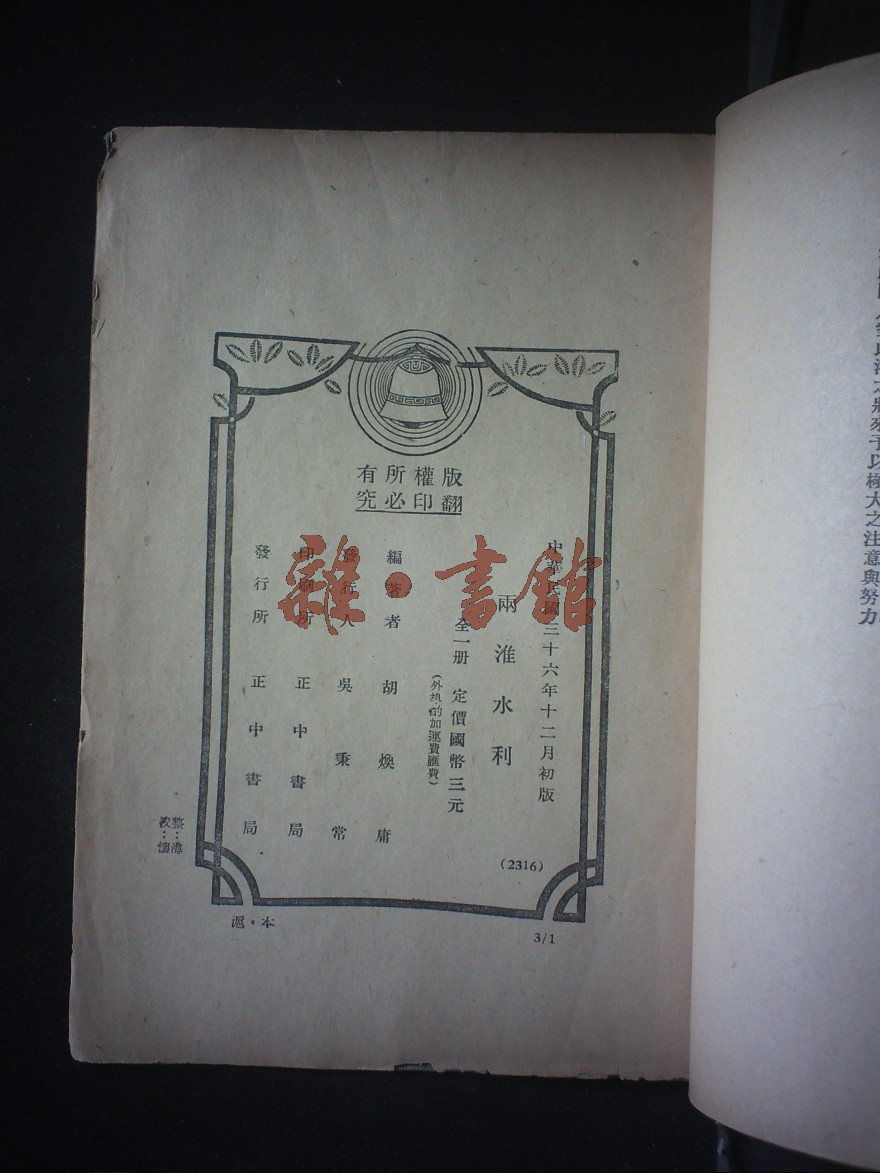 版權所有
翻印必究
中華民國三十六年十二月初版
兩淮水利
全一册 定價國幣三元
(外埠酌加運費匯費)
編著者 胡煥庸
發行人 吳秉常
印刷所 正中書局
發行所 正中書局
(2316)
整：海
校：懷
滬・本
3/1
雜・書館
之將來予以極大之注意與努力